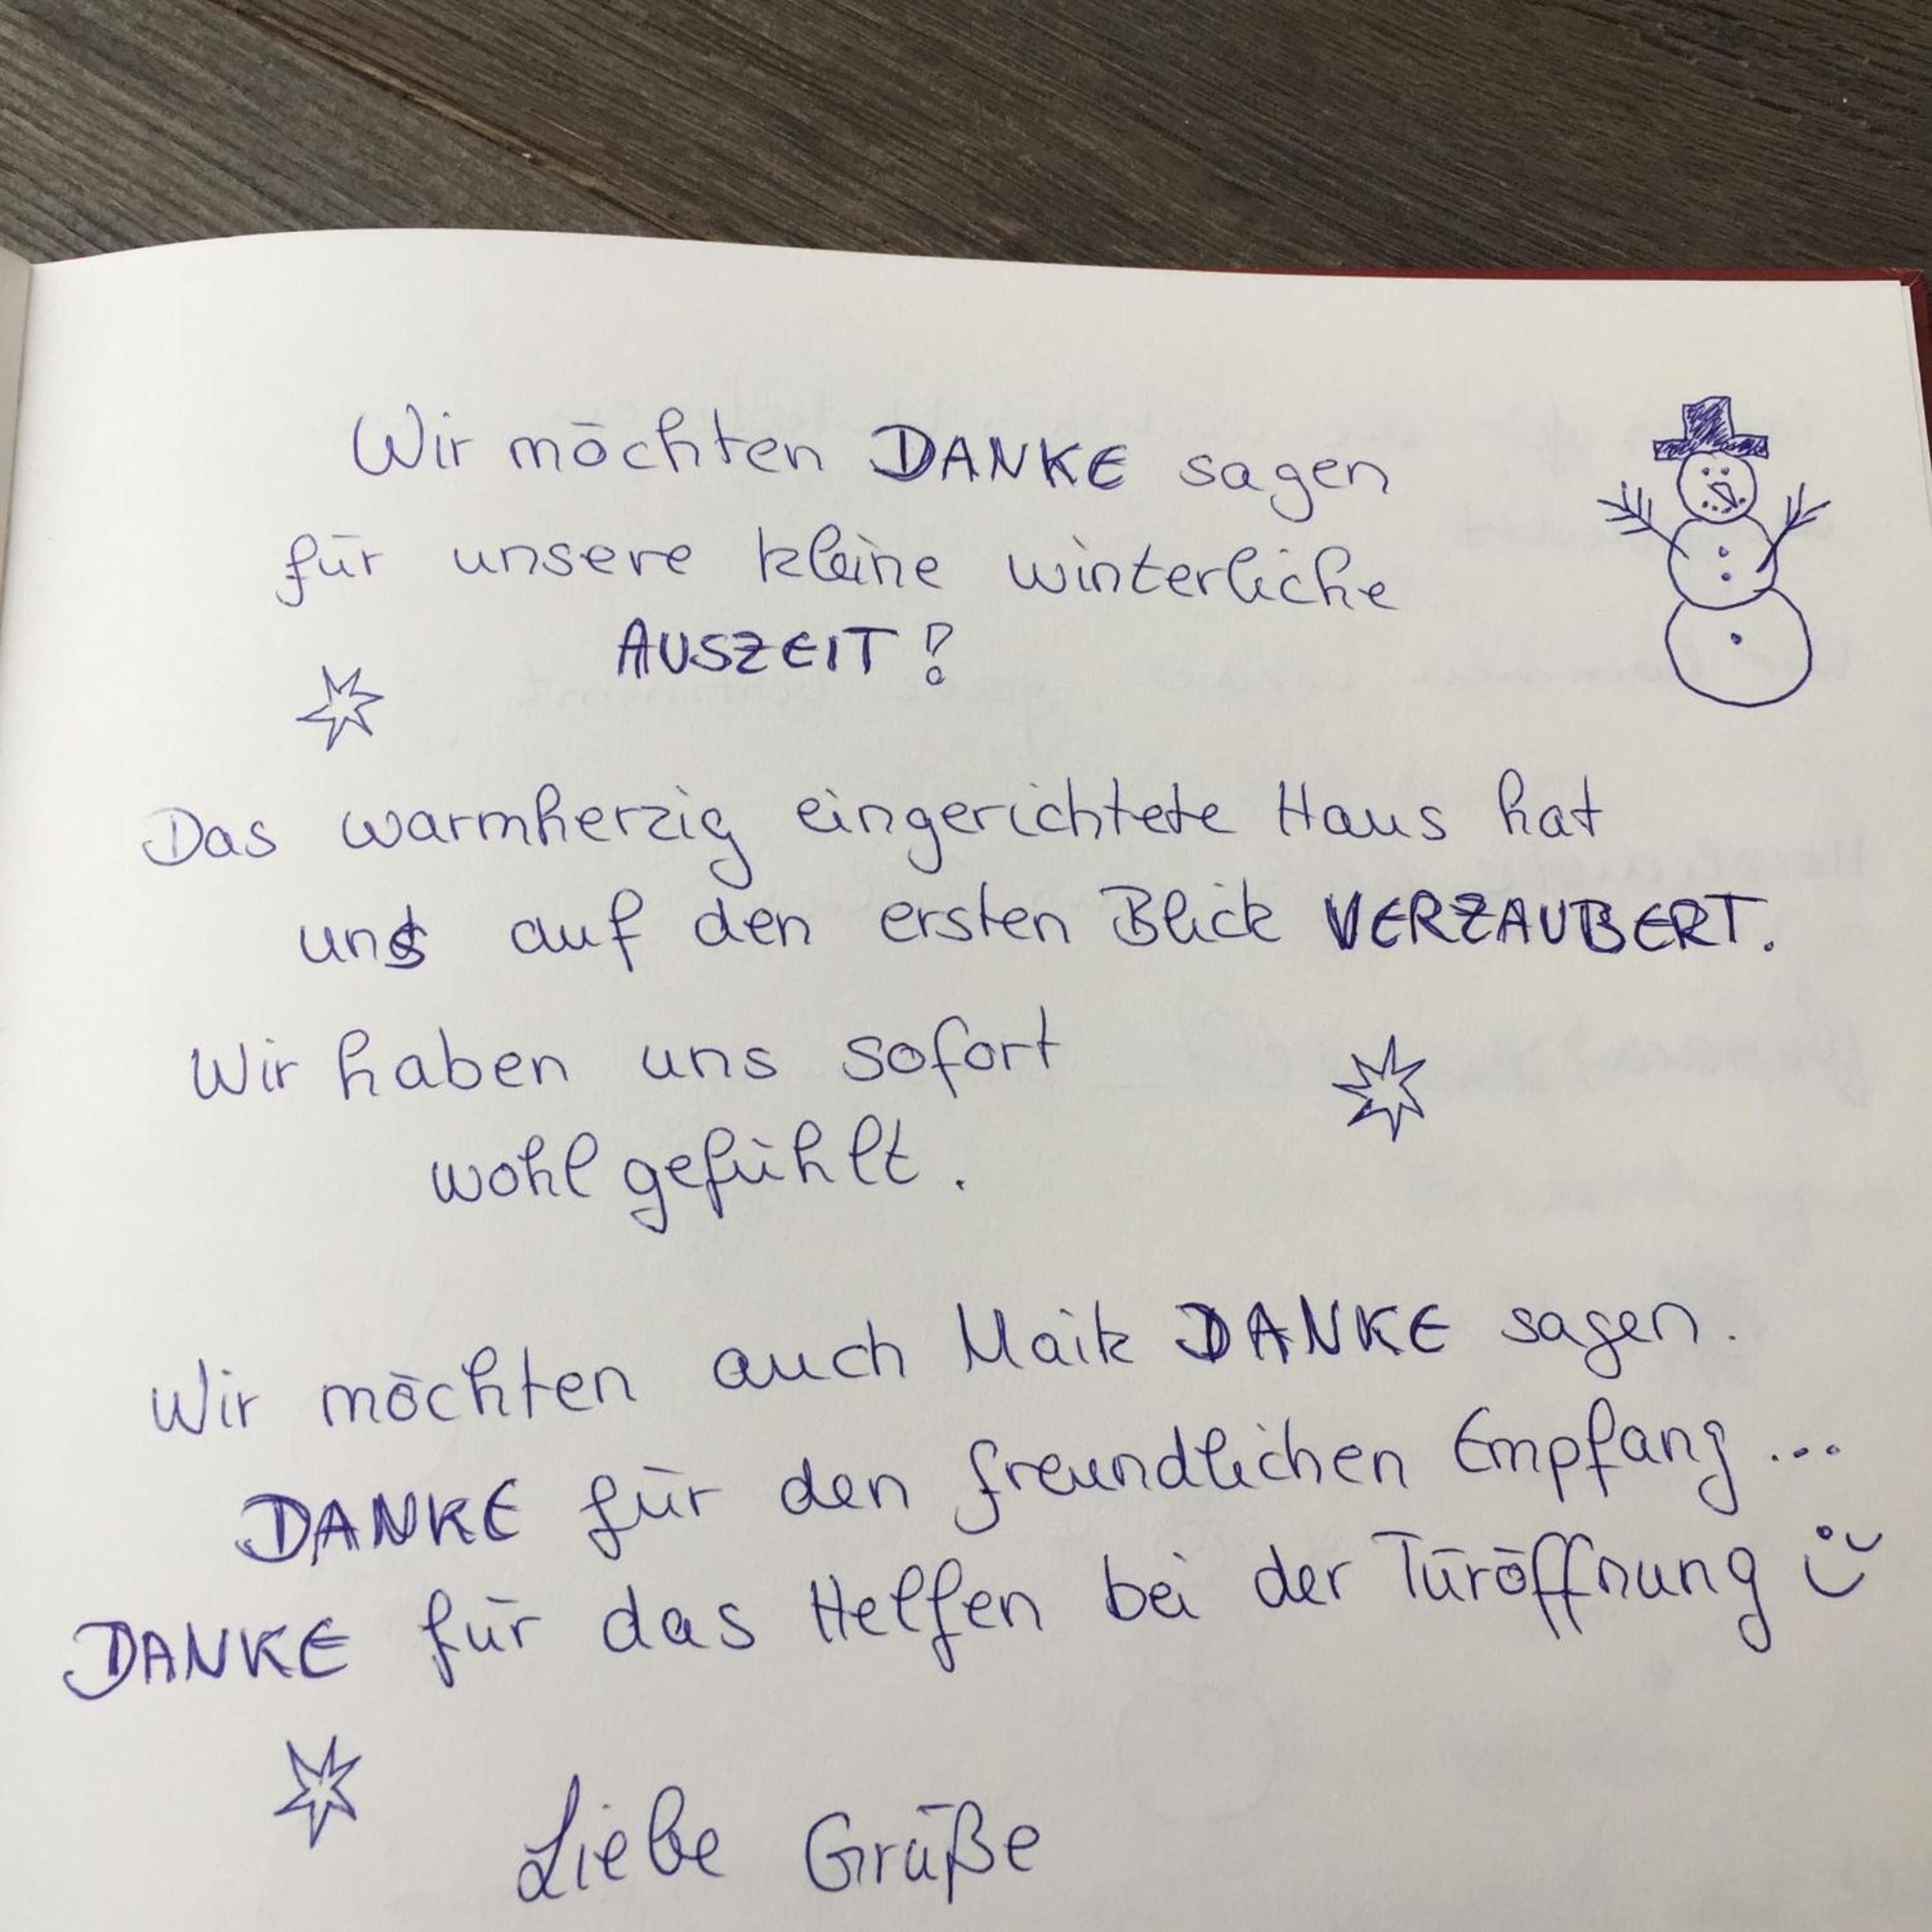 Wir möchten DANKE sagen
für unsere kleine winterliche
AUSZEIT!
Das warmherzig eingerichtete Haus hat
uns auf den ersten Blick VERZAUBERT.
Wir haben uns sofort
wohl gefühlt.
Wir möchten auch Maik DANKE sagen.
DANKE für den freundlichen Empfang...
DANKE für das Helfen bei der Türöffnung
Liebe Grüße